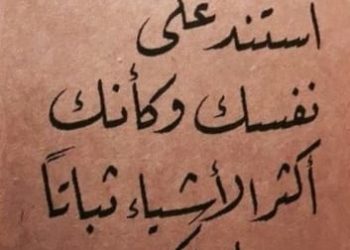 استند على
نفسك وكأنك
أكثر الأشياء ثباتاً